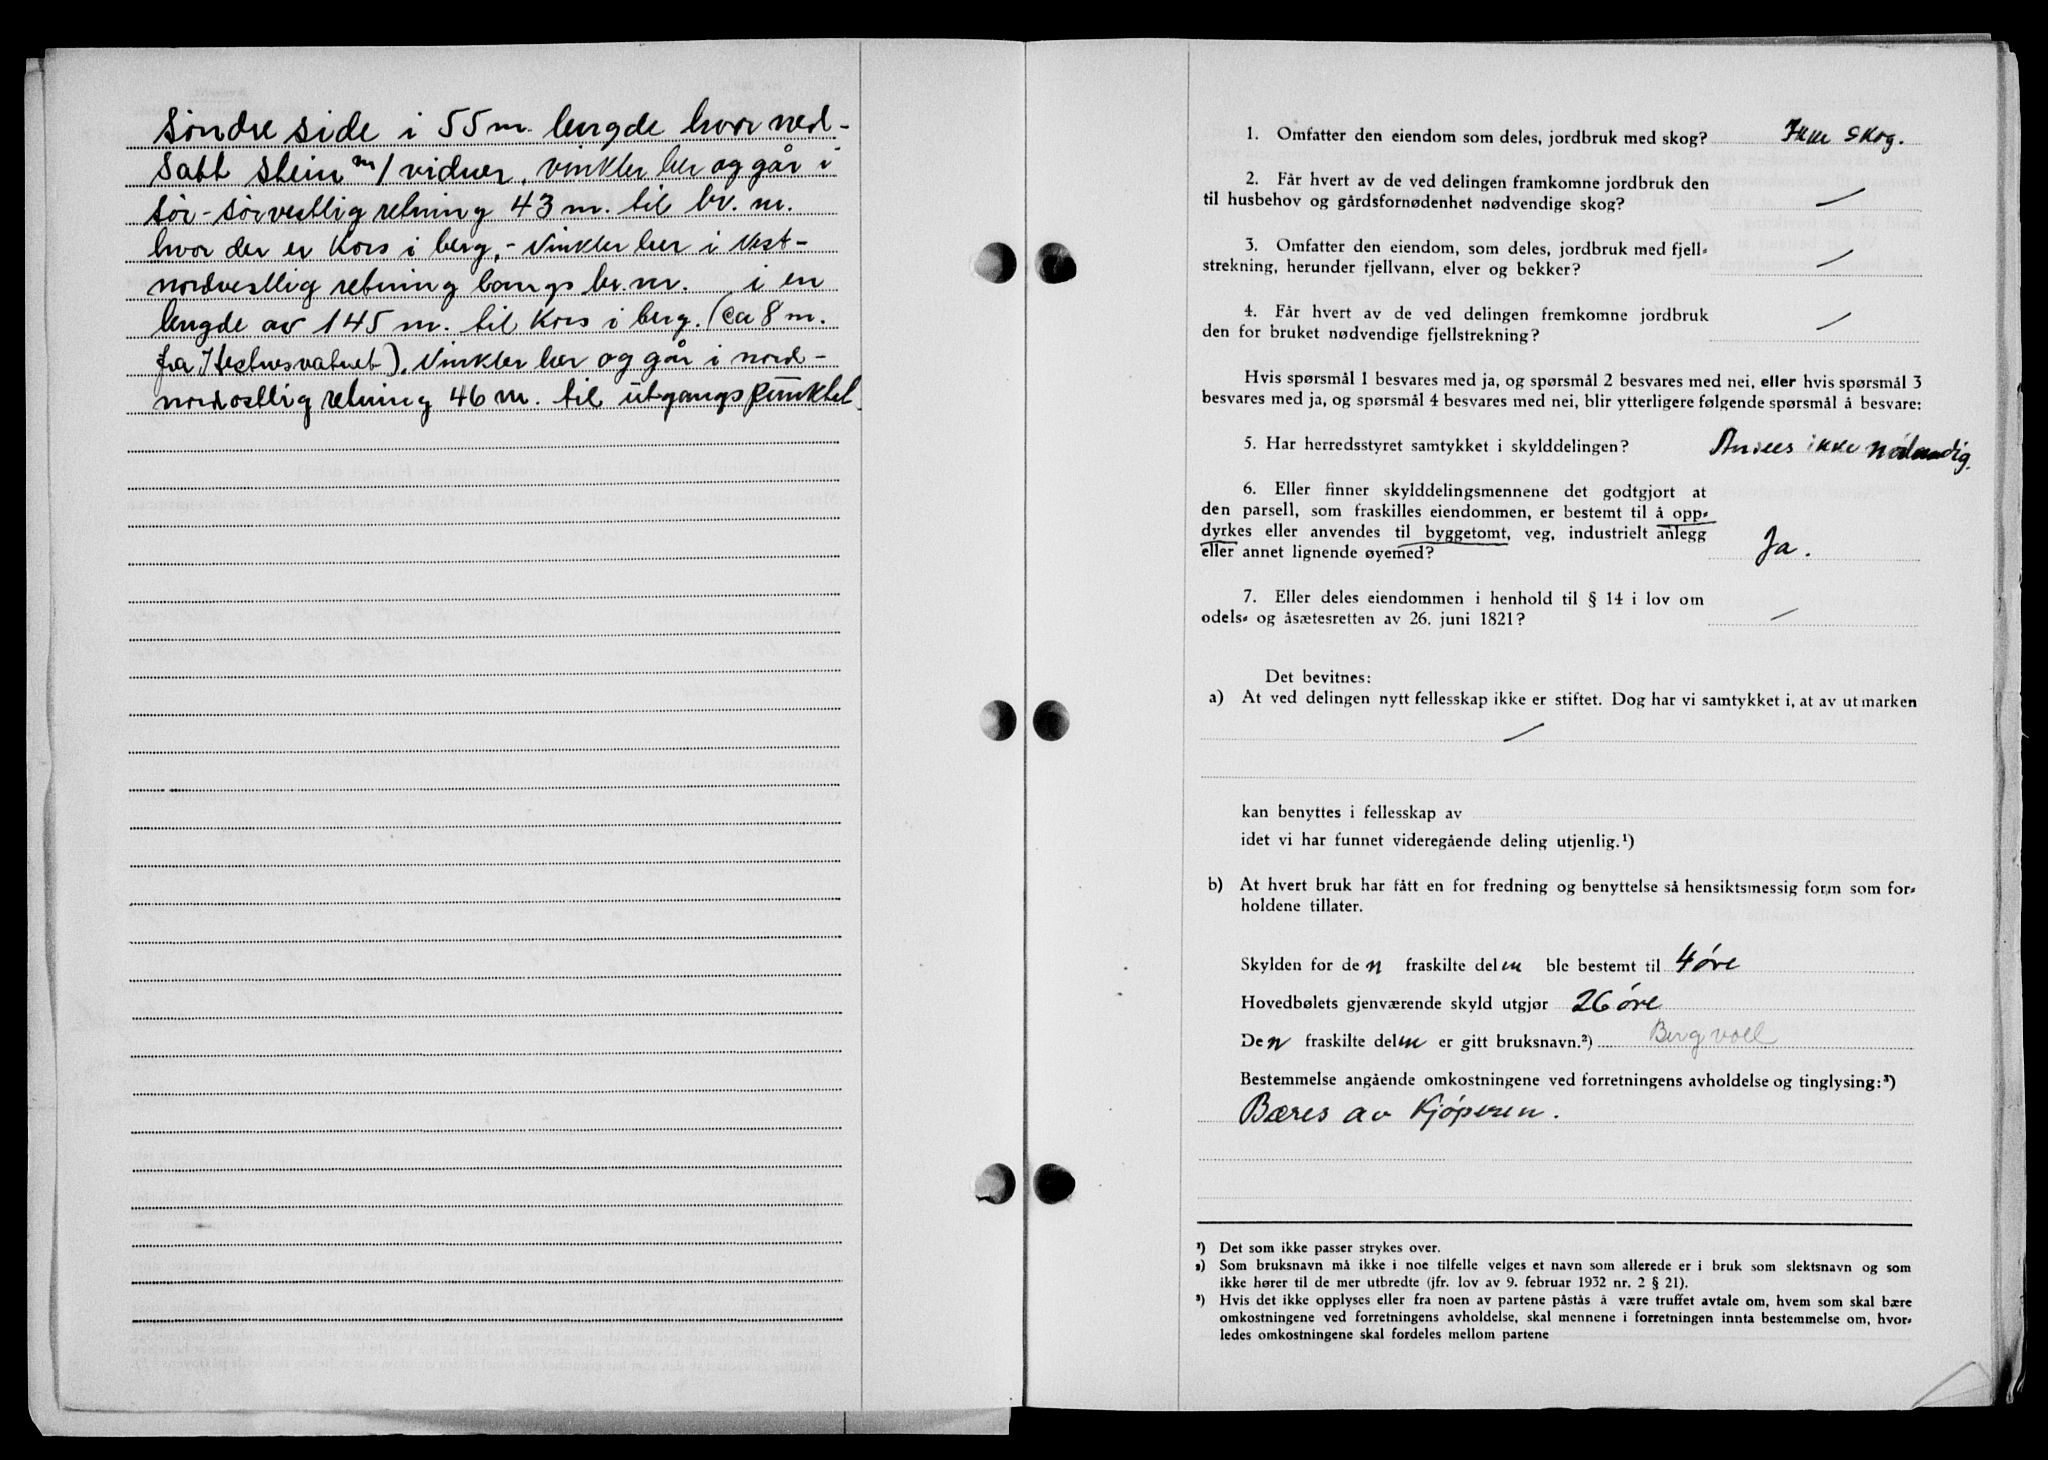 søndre side i 55 m. lengde hvor ned-
satt stein m/ vidner, vinkler her og går i
sør-sørvestlig retning 43 m. til br. m.
hvor der er kors i berg,- vinkler her i vest-
nordvestlig retning langs br. m. i en
lengde av 145 m. til kors i berg. (ca 8 m.
fra Hestnesvatnet). Vinkler her og går i nord-
nordostlig retning 46 m. til utgangspunktet.
1. Omfatter den eiendom som deles, jordbruk med skog? Ikke skog.
2. Får hvert av de ved delingen framkomne jordbruk den
til husbehov og gårdsfornødenhet nødvendige skog? /
3. Omfatter den eiendom, som deles, jordbruk med fjell-
strekning, herunder fjellvann, elver og bekker? /
4. Får hvert av de ved delingen fremkomne jordbruk
den for bruket nødvendige fjellstrekning? /
Hvis spørsmål 1 besvares med ja, og spørsmål 2 besvares med nei, eller hvis spørsmål 3
besvares med ja, og spørsmål 4 besvares med nei, blir ytterligere følgende spørsmål å besvare:
5. Har herredsstyret samtykket i skylddelingen? Ansees ikke nødvendig.
6. Eller finner skylddelingsmennene det godtgjort at
den parsell, som fraskilles eiendommen, er bestemt til å opp-
dyrkes eller anvendes til byggetomt, veg, industrielt anlegg
eller annet lignende øyemed? Ja.
7. Eller deles eiendommen i henhold til § 14 i lov om
odels- og åsætesretten av 26. juni 1821? /
Det bevitnes:
a) At ved delingen nytt fellesskap ikke er stiftet. Dog har vi samtykket i, at av utmarken
/
kan benyttes i fellesskap av
idet vi har funnet videregående deling utjenlig.¹)
b) At hvert bruk har fått en for fredning og benyttelse så hensiktsmessig form som for-
holdene tillater.
Skylden for den fraskilte delen ble bestemt til 4 øre
Hovedbølets gjenværende skyld utgjør 26 øre
Den fraskilte delen er gitt bruksnavn.²) Bergvoll
Bestemmelse angående omkostningene ved forretningens avholdelse og tinglysing:³)
Bæres av kjøperen.
¹) Det som ikke passer strykes over.
²) Som bruksnavn må ikke i noe tilfelle velges et navn som allerede er i bruk som slektsnavn og som
ikke hører til de mer utbredte (jfr. lov av 9. februar 1932 nr. 2 § 21).
³) Hvis det ikke opplyses eller fra noen av partene påstås å være truffet avtale om, hvem som skal bære
omkostningene ved forretningens avholdelse, skal mennene i forretningen innta bestemmelse om, hvor-
ledes omkostningene skal fordeles mellom partene